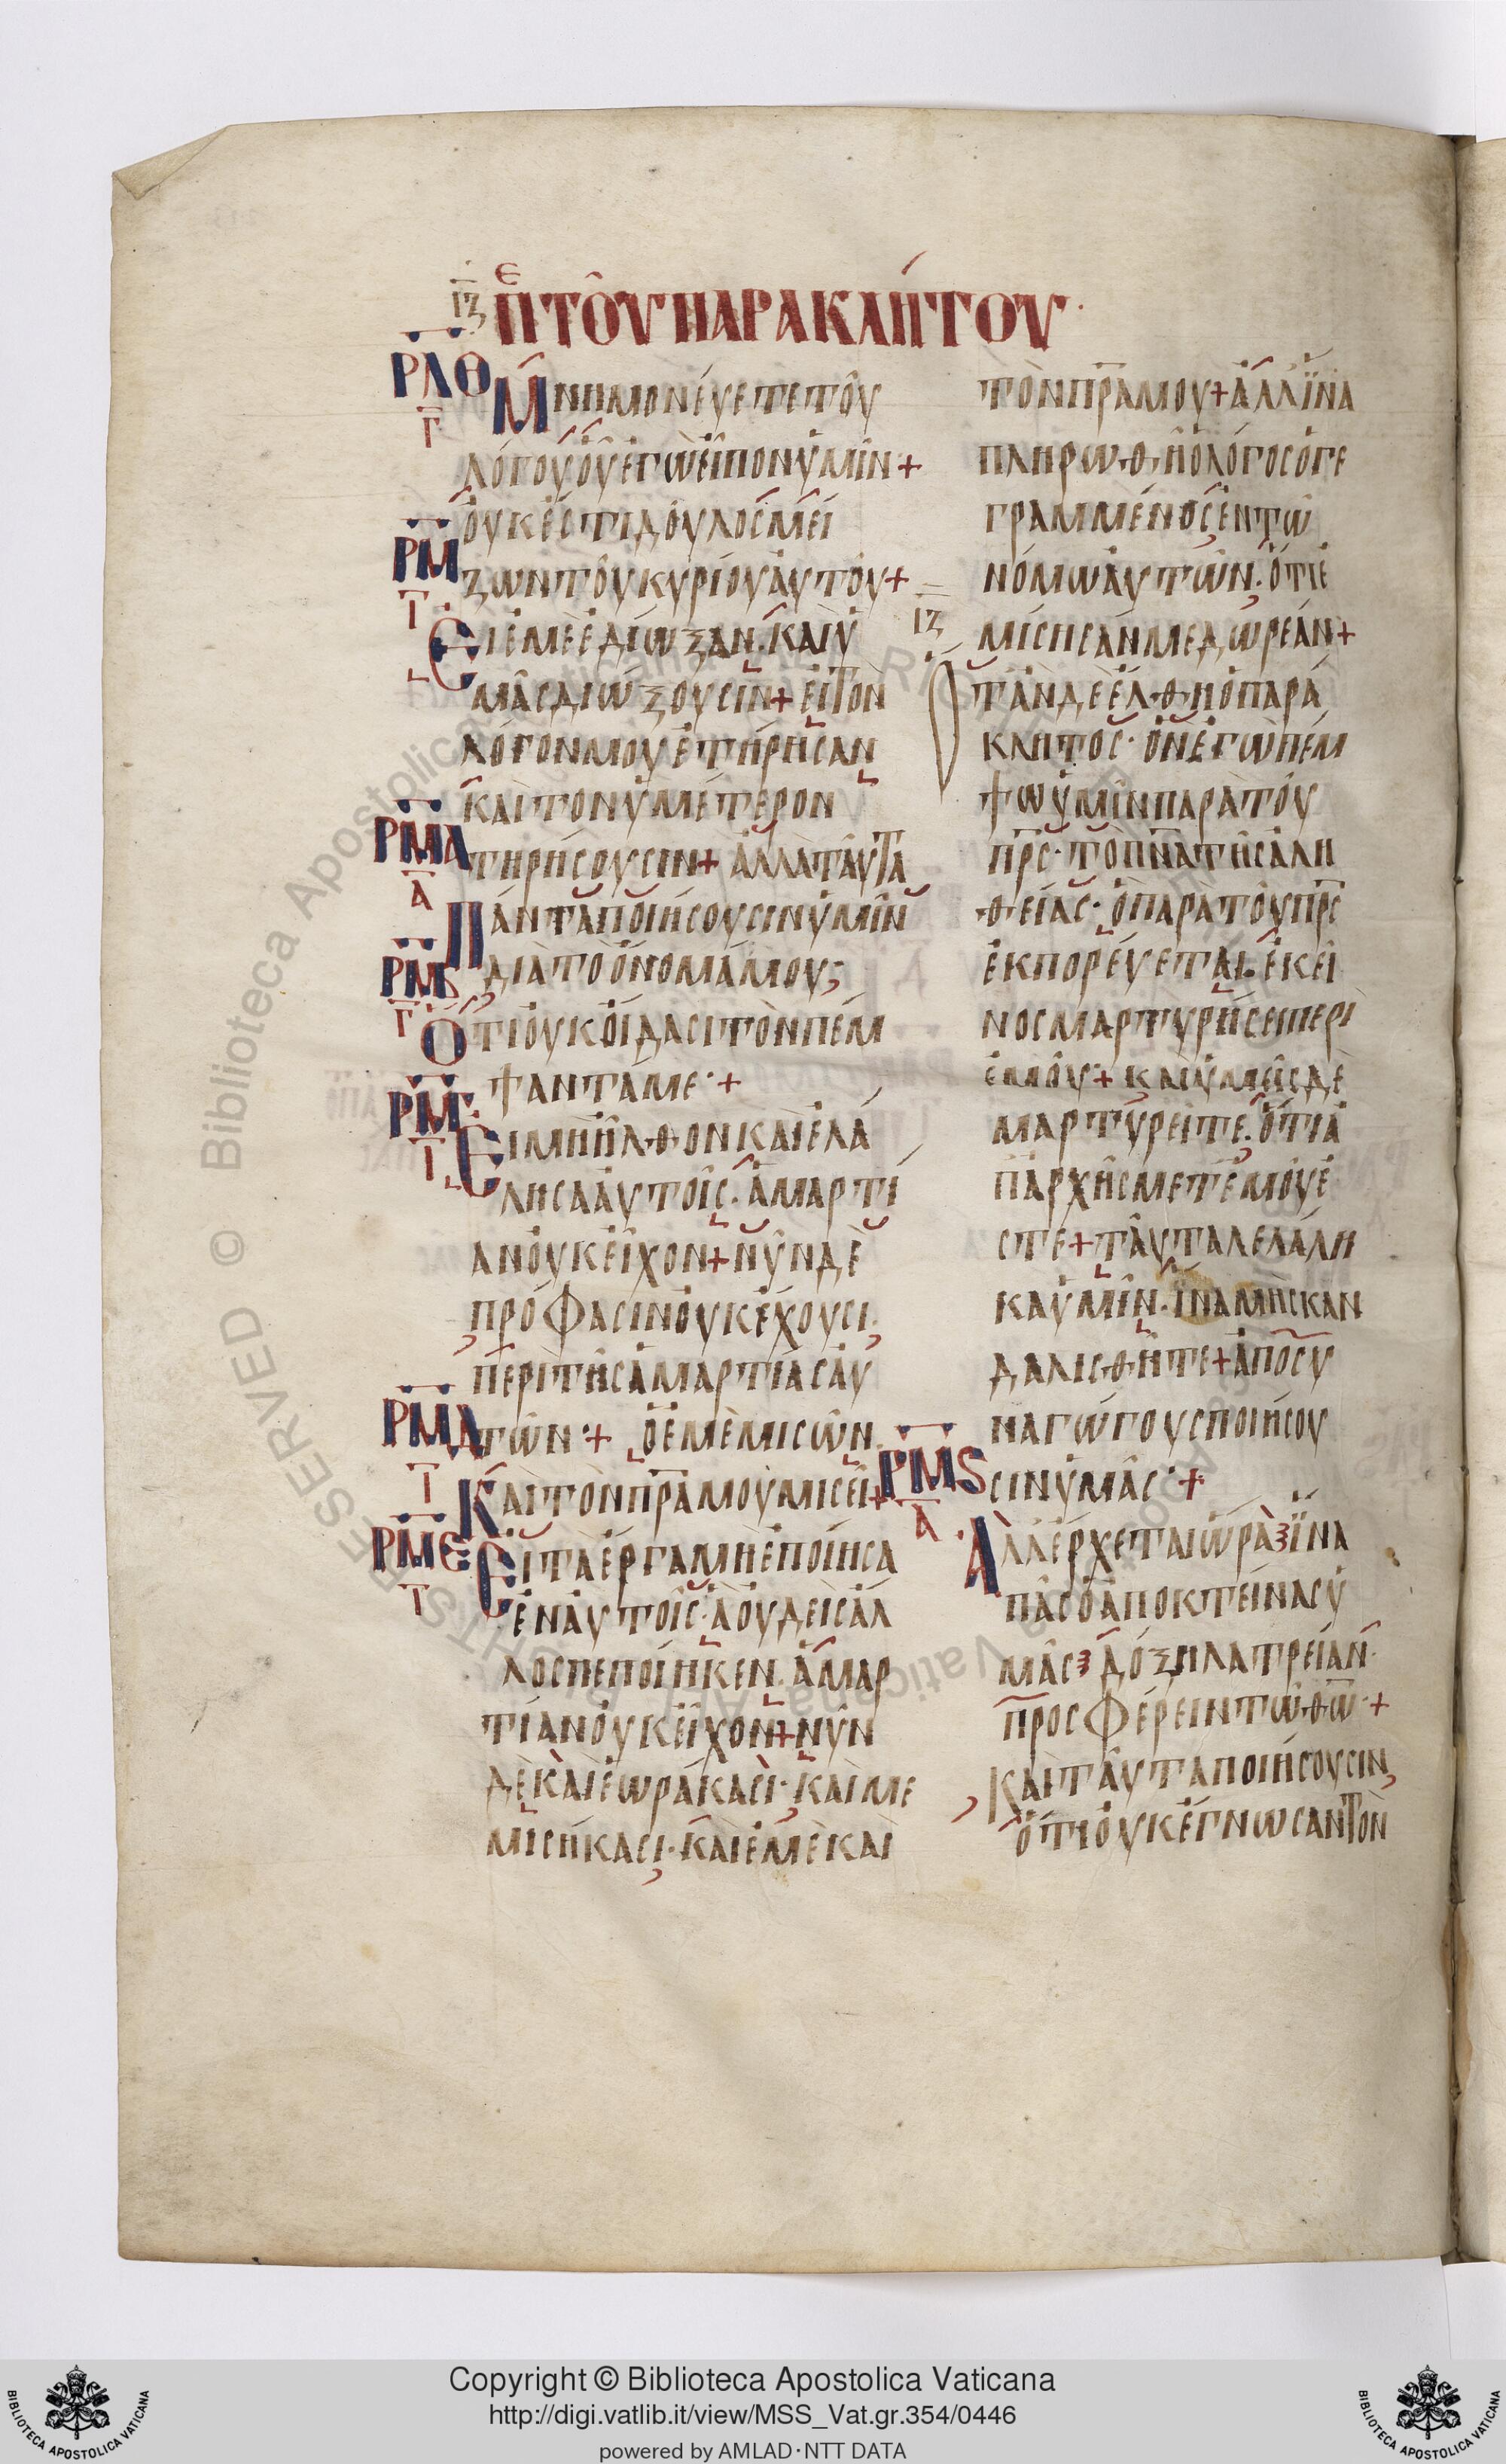 ΙΖ ΠΕ ΤΟΥ ΠΑΡΑΚΛΗΤΟΥ
ΡΛΘ
Γ
ΜΝΗΜΟΝΕΥΕΤΕ ΤΟΥ
ΛΟΓΟΥ ΟΥ ΕΓΩ ΕΙΠΟΝ ΥΜΙΝ+
ΟΥΚ ΕΣΤΙ ΔΟΥΛΟΣ ΜΕΙ
ΡΜ
Γ
ΖΩΝ ΤΟΥ ΚΥΡΙΟΥ ΑΥΤΟΥ+
ΕΙ ΕΜΕ ΕΔΙΩΞΑΝ· ΚΑΙ Υ
ΜΑΣ ΔΙΩΞΟΥΣΙΝ+ ΕΙ ΤΟΝ
ΛΟΓΟΝ ΜΟΥ ΕΤΗΡΗΣΑΝ
ΚΑΙ ΤΟΝ ΥΜΕΤΕΡΟΝ
ΡΜΑ
Α
ΤΗΡΗΣΟΥΣΙΝ+ ΑΛΛΑ ΤΑΥΤΑ
ΠΑΝΤΑ ΠΟΙΗΣΟΥΣΙΝ ΥΜΙΝ
ΔΙΑ ΤΟ ΟΝΟΜΑ ΜΟΥ;
ΡΜΒ
Γ
ΟΤΙ ΟΥΚ ΟΙΔΑΣΙ ΤΟΝ ΠΕΜ
ΨΑΝΤΑ ΜΕ·+
ΡΜΓ
Ι
ΕΙ ΜΗ ΗΛΘΟΝ ΚΑΙ ΕΛΑ
ΛΗΣΑ ΑΥΤΟΙΣ· ΑΜΑΡΤΙ
ΑΝ ΟΥΚ ΕΙΧΟΝ+ ΝΥΝ ΔΕ
ΠΡΟΦΑΣΙΝ ΟΥΚ ΕΧΟΥΣΙ
ΠΕΡΙ ΤΗΣ ΑΜΑΡΤΙΑΣ ΑΥ
ΡΜΔ
Ι
ΤΩΝ·+ Ο ΕΜΕ ΜΙΣΩΝ
ΚΑΙ ΤΟΝ ΠΡΑ ΜΟΥ ΜΙΣΕΙ+
ΡΜΕ
Ι
ΕΙ ΤΑ ΕΡΓΑ ΜΗ ΕΠΟΙΗΣΑ
ΕΝ ΑΥΤΟΙΣ· Α ΟΥΔΕΙΣ ΑΛ
ΛΟΣ ΠΕΠΟΙΗΚΕΝ· ΑΜΑΡ
ΤΙΑΝ ΟΥΚ ΕΙΧΟΝ+ ΝΥΝ
ΔΕ ΚΑΙ ΕΩΡΑΚΑΣΙ· ΚΑΙ ΜΕ
ΜΙΣΗΚΑΣΙ· ΚΑΙ ΕΜΕ ΚΑΙ
ΤΟΝ ΠΡΑ ΜΟΥ+ ΑΛΛ ΙΝΑ
ΠΛΗΡΩΘΗ Ο ΛΟΓΟΣ Ο ΓΕ
ΓΡΑΜΜΕΝΟΣ ΕΝ ΤΩ
ΝΟΜΩ ΑΥΤΩΝ· ΟΤΙ Ε
ΜΙΣΗΣΑΝ ΜΕ ΔΩΡΕΑΝ+
ΙΖ
ΟΤΑΝ ΔΕ ΕΛΘΗ Ο ΠΑΡΑ
ΚΛΗΤΟΣ· ΟΝ ΕΓΩ ΠΕΜ
ΨΩ ΥΜΙΝ ΠΑΡΑ ΤΟΥ
ΠΡΣ· ΤΟ ΠΝΑ ΤΗΣ ΑΛΗ
ΘΕΙΑΣ· Ο ΠΑΡΑ ΤΟΥ ΠΡΣ
ΕΚΠΟΡΕΥΕΤΑΙ· ΕΚΕΙ
ΝΟΣ ΜΑΡΤΥΡΗΣΕΙ ΠΕΡΙ
ΕΜΟΥ+ ΚΑΙ ΥΜΕΙΣ ΔΕ
ΜΑΡΤΥΡΕΙΤΕ· ΟΤΙ Α
Π ΑΡΧΗΣ ΜΕΤ ΕΜΟΥ Ε
ΣΤΕ+ ΤΑΥΤΑ ΛΕΛΑΛΗ
ΚΑ ΥΜΙΝ· ΙΝΑ ΜΗ ΣΚΑΝ
ΔΑΛΙΣΘΗΤΕ+ ΑΠΟΣΥ
ΝΑΓΩΓΟΥΣ ΠΟΙΗΣΟΥ
ΡΜϚ
Α
ΣΙΝ ΥΜΑΣ·+
ΑΛΛ ΕΡΧΕΤΑΙ ΩΡΑ ΙΝΑ
ΠΑΣ Ο ΑΠΟΚΤΕΙΝΑΣ Υ
ΜΑΣ ΔΟΞΗ ΛΑΤΡΕΙΑΝ
ΠΡΟΣΦΕΡΕΙΝ ΤΩ ΘΩ·+
ΚΑΙ ΤΑΥΤΑ ΠΟΙΗΣΟΥΣΙΝ
ΟΤΙ ΟΥΚ ΕΓΝΩΣΑΝ ΤΟΝ
Copyright © Biblioteca Apostolica Vaticana
http://digi.vatlib.it/view/MSS_Vat.gr.354/0446
powered by AMLAD·NTT DATA